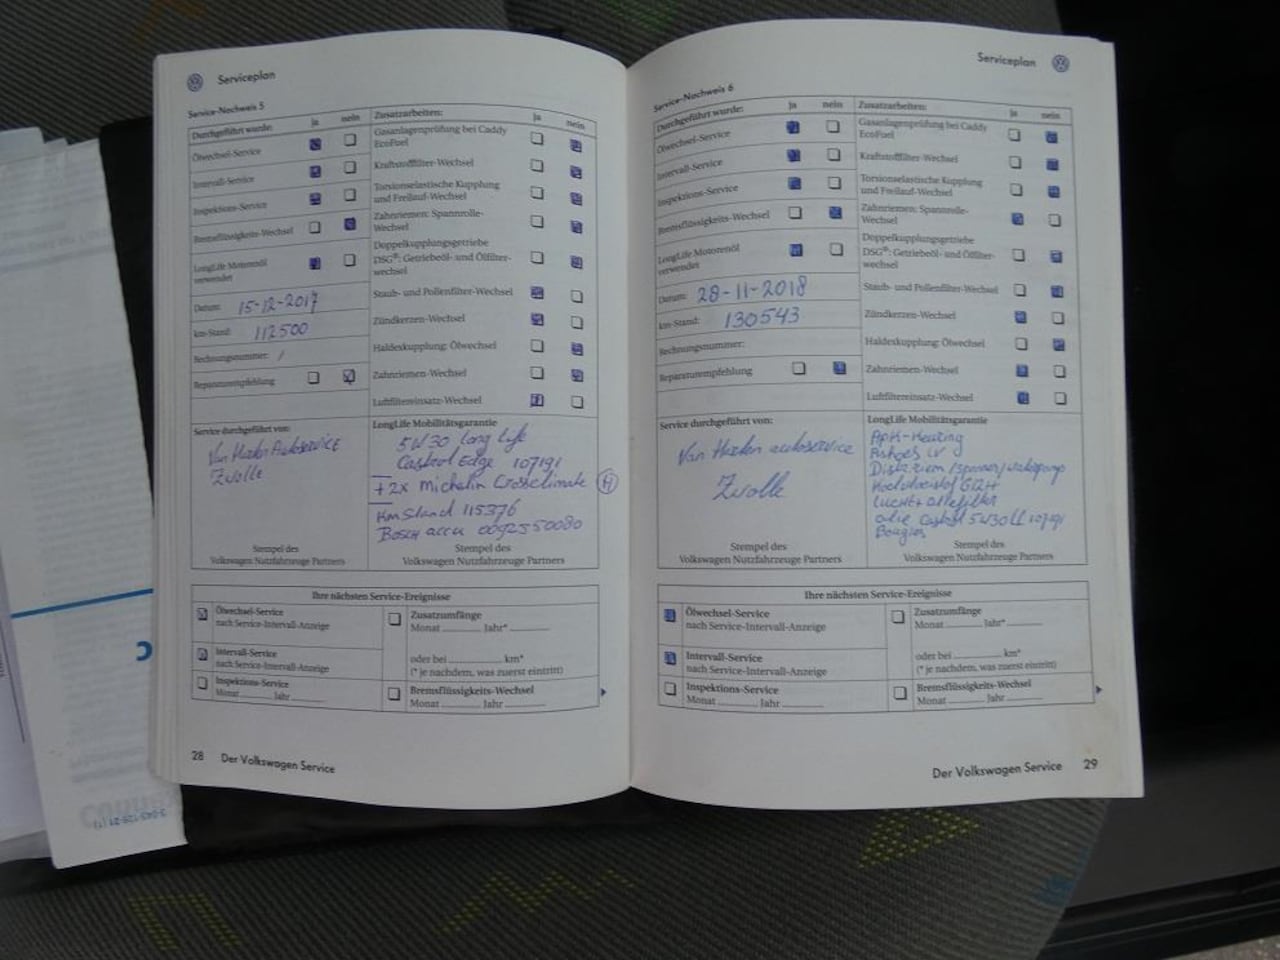 Serviceplan
Service-Nachweis 5
Durchgeführt wurde: ja nein
Ölwechsel-Service
Intervall-Service
Inspektions-Service
Bremsflüssigkeits-Wechsel
LongLife Motorenöl
verwendet
Datum: 15-12-2017
km-Stand: 112500
Rechnungsnummer: /
Reparaturempfehlung
Zusatzarbeiten: ja nein
Gasanlagenprüfung bei Caddy
EcoFuel
Kraftstofffilter-Wechsel
Torsionselastische Kupplung
und Freilauf-Wechsel
Zahnriemen: Spannrolle-
Wechsel
Doppelkupplungsgetriebe
DSG®: Getriebeöl- und Ölfilter-
wechsel
Staub- und Pollenfilter-Wechsel
Zündkerzen-Wechsel
Haldexkupplung: Ölwechsel
Zahnriemen-Wechsel
Luftfiltereinsatz-Wechsel
Service durchgeführt von:
Autoservice
Zwolle
Stempel des
Volkswagen Nutzfahrzeuge Partners
LongLife Mobilitätsgarantie
5W30 Long Life
Castrol Edge 107191
+2x Michelin Crossclimate
KmStand 115376
Bosch accu 0092S50080
Stempel des
Volkswagen Nutzfahrzeuge Partners
Ihre nächsten Service-Ereignisse
Ölwechsel-Service
nach Service-Intervall-Anzeige
Intervall-Service
nach Service-Intervall-Anzeige
Inspektions-Service
Monat Jahr
Zusatzumfänge
Monat Jahr*
oder bei km*
(* je nachdem, was zuerst eintritt)
Bremsflüssigkeits-Wechsel
Monat Jahr
28 Der Volkswagen Service
Serviceplan
Service-Nachweis 6
Durchgeführt wurde: ja nein
Ölwechsel-Service
Intervall-Service
Inspektions-Service
Bremsflüssigkeits-Wechsel
LongLife Motorenöl
verwendet
Datum: 28-11-2018
km-Stand: 130543
Rechnungsnummer:
Reparaturempfehlung
Zusatzarbeiten: ja nein
Gasanlagenprüfung bei Caddy
EcoFuel
Kraftstofffilter-Wechsel
Torsionselastische Kupplung
und Freilauf-Wechsel
Zahnriemen: Spannrolle-
Wechsel
Doppelkupplungsgetriebe
DSG®: Getriebeöl- und Ölfilter-
wechsel
Staub- und Pollenfilter-Wechsel
Zündkerzen-Wechsel
Haldexkupplung: Ölwechsel
Zahnriemen-Wechsel
Luftfiltereinsatz-Wechsel
Service durchgeführt von:
autoservice
Zwolle
LongLife Mobilitätsgarantie
APK-Keuring
Koelvloeistof G12+
Lucht+ oliefilter
olie Castrol 5W30LL 107191
Bougies
Stempel des
Volkswagen Nutzfahrzeuge Partners
Stempel des
Volkswagen Nutzfahrzeuge Partners
Ihre nächsten Service-Ereignisse
Ölwechsel-Service
nach Service-Intervall-Anzeige
Intervall-Service
nach Service-Intervall-Anzeige
Inspektions-Service
Monat Jahr
Zusatzumfänge
Monat Jahr*
oder bei km*
(* je nachdem, was zuerst eintritt)
Bremsflüssigkeits-Wechsel
Monat Jahr
Der Volkswagen Service 29